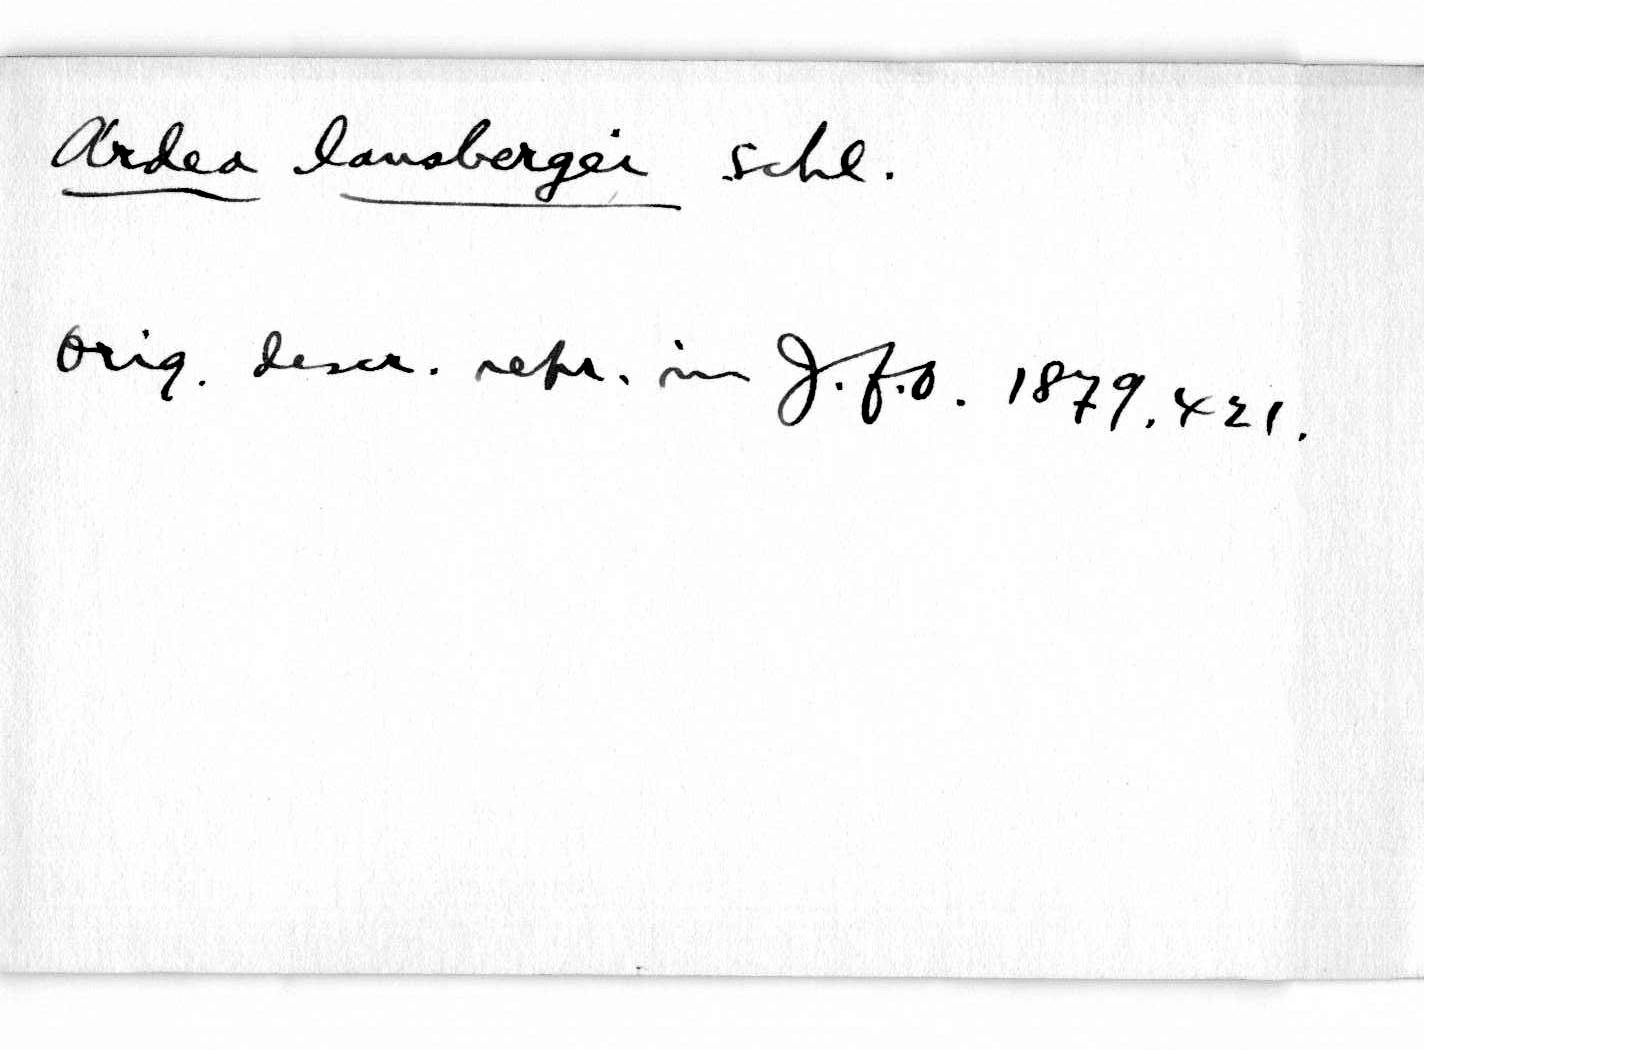 Ardea lansbergei Schl.
Orig. descr. repr. in J.f.O. 1879, 421.